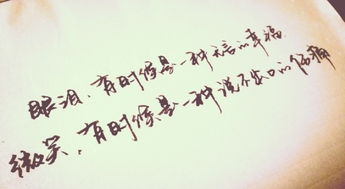 眼泪，有时候是一种无言的幸福
微笑，有时候是一种说不出口的伤痛